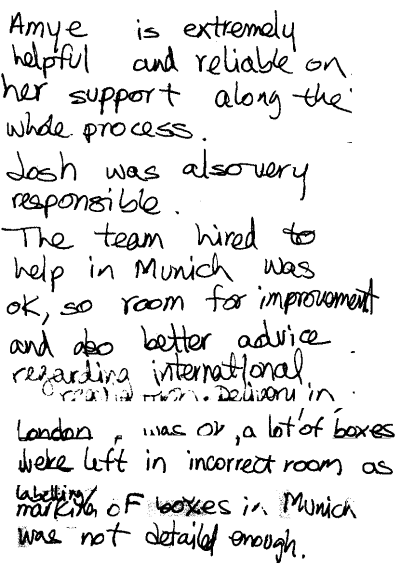 Amye is extremely
helpful and reliable on
her support along the
whole process.
Josh was also very
responsible.
The team hired to
help in Munich was
ok, so room for improvement
and also better advice
regarding international
Delivery in
London, was ok, a lot of boxes
were left in incorrect room as
labelling/
marking of boxes in Munich
was not detailed enough.